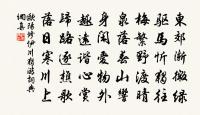 東郊漸微綠
驅馬忻獨往
梅繁野渡晴
泉落春山響
身閑愛物外
趣遠諧心賞
歸路逐樵歌
落日寒川上
歐陽修伊川獨游詞典
網真